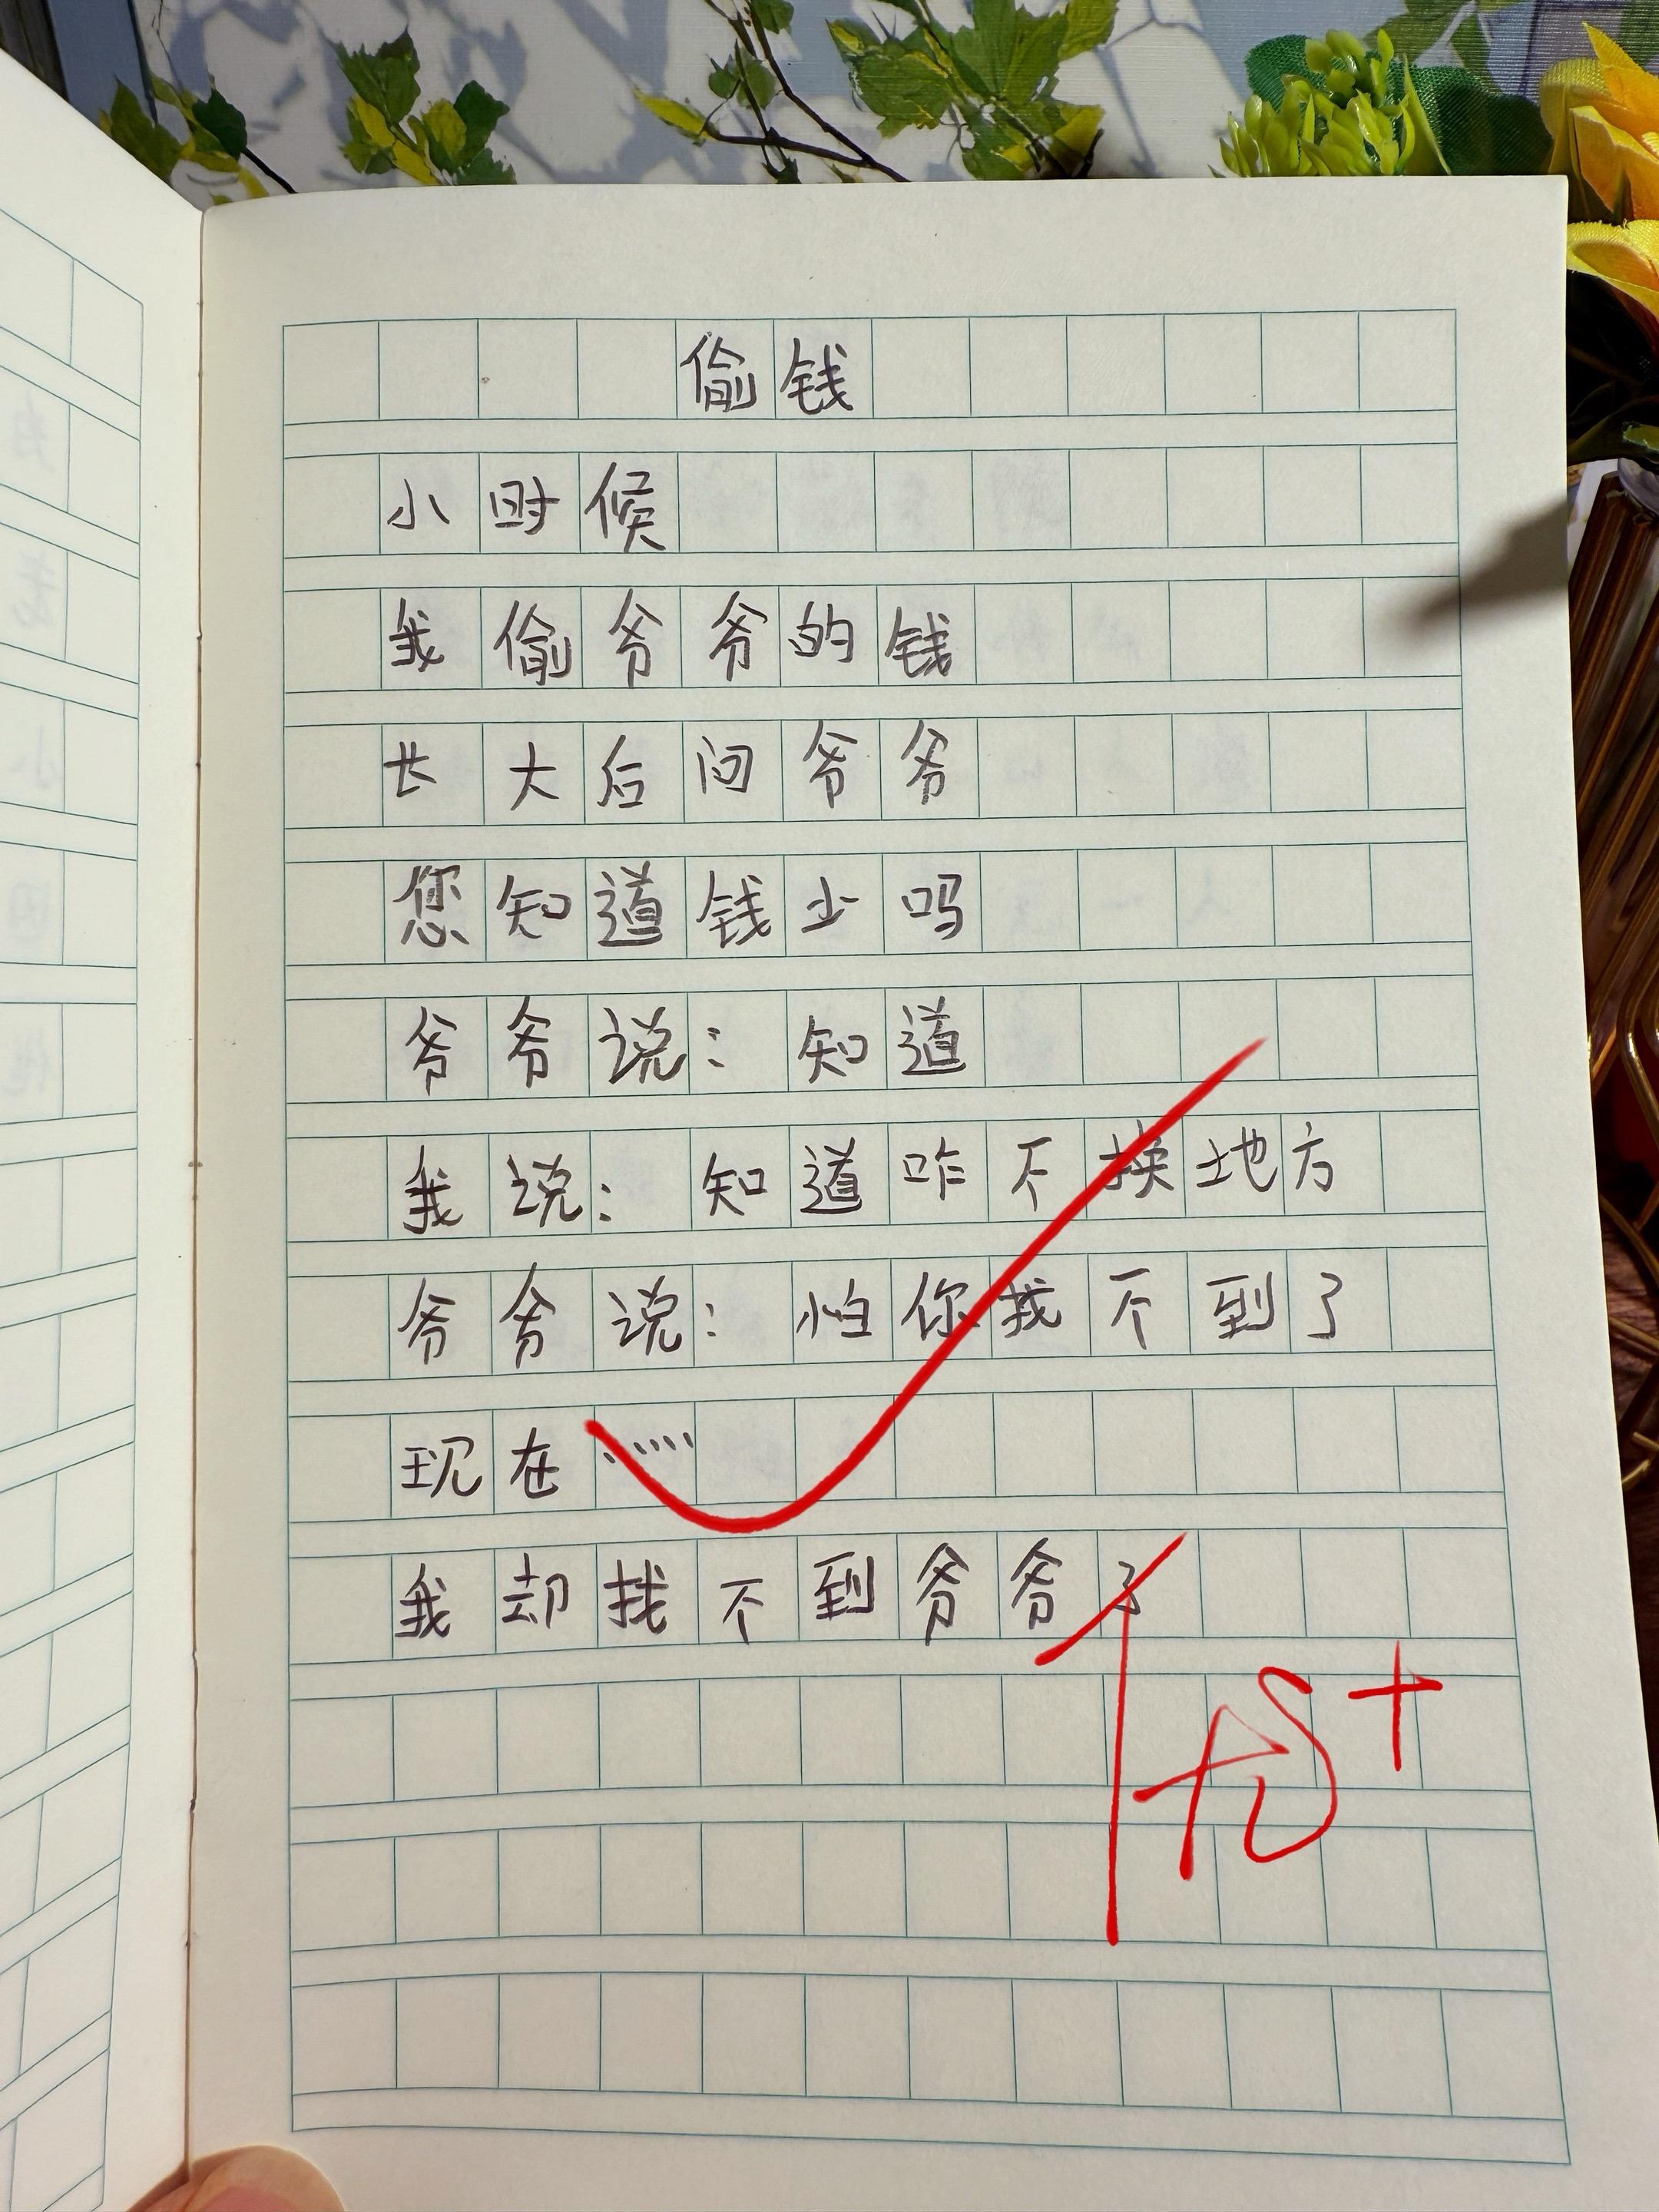 偷钱
小时候
我偷爷爷的钱
长大后问爷爷
您知道钱少吗
爷爷说：知道
我说：知道咋不换地方
爷爷说：怕你找不到了
现在……
我却找不到爷爷了
优+